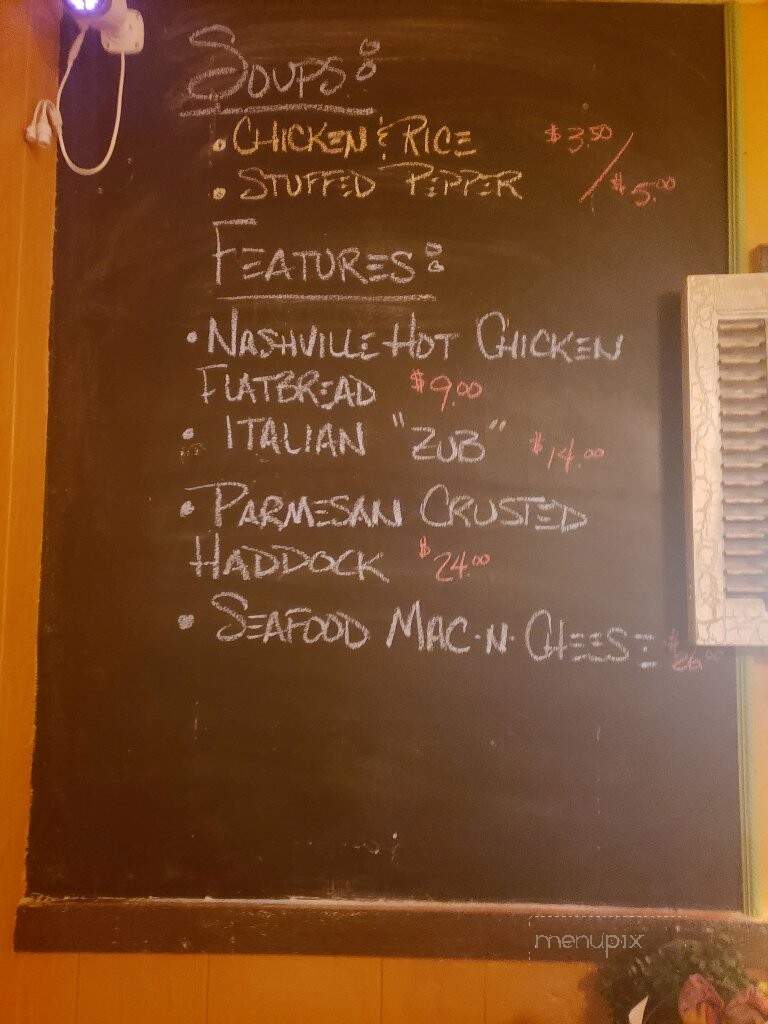 Soups:
• Chicken & Rice $3.50/
• Stuffed Pepper $5.00
Features:
• Nashville Hot Chicken
Flatbread $9.00
• Italian "Zub" $14.00
• Parmesan Crusted
Haddock $24.00
• Seafood Mac-n-Cheese $26.00
menupix